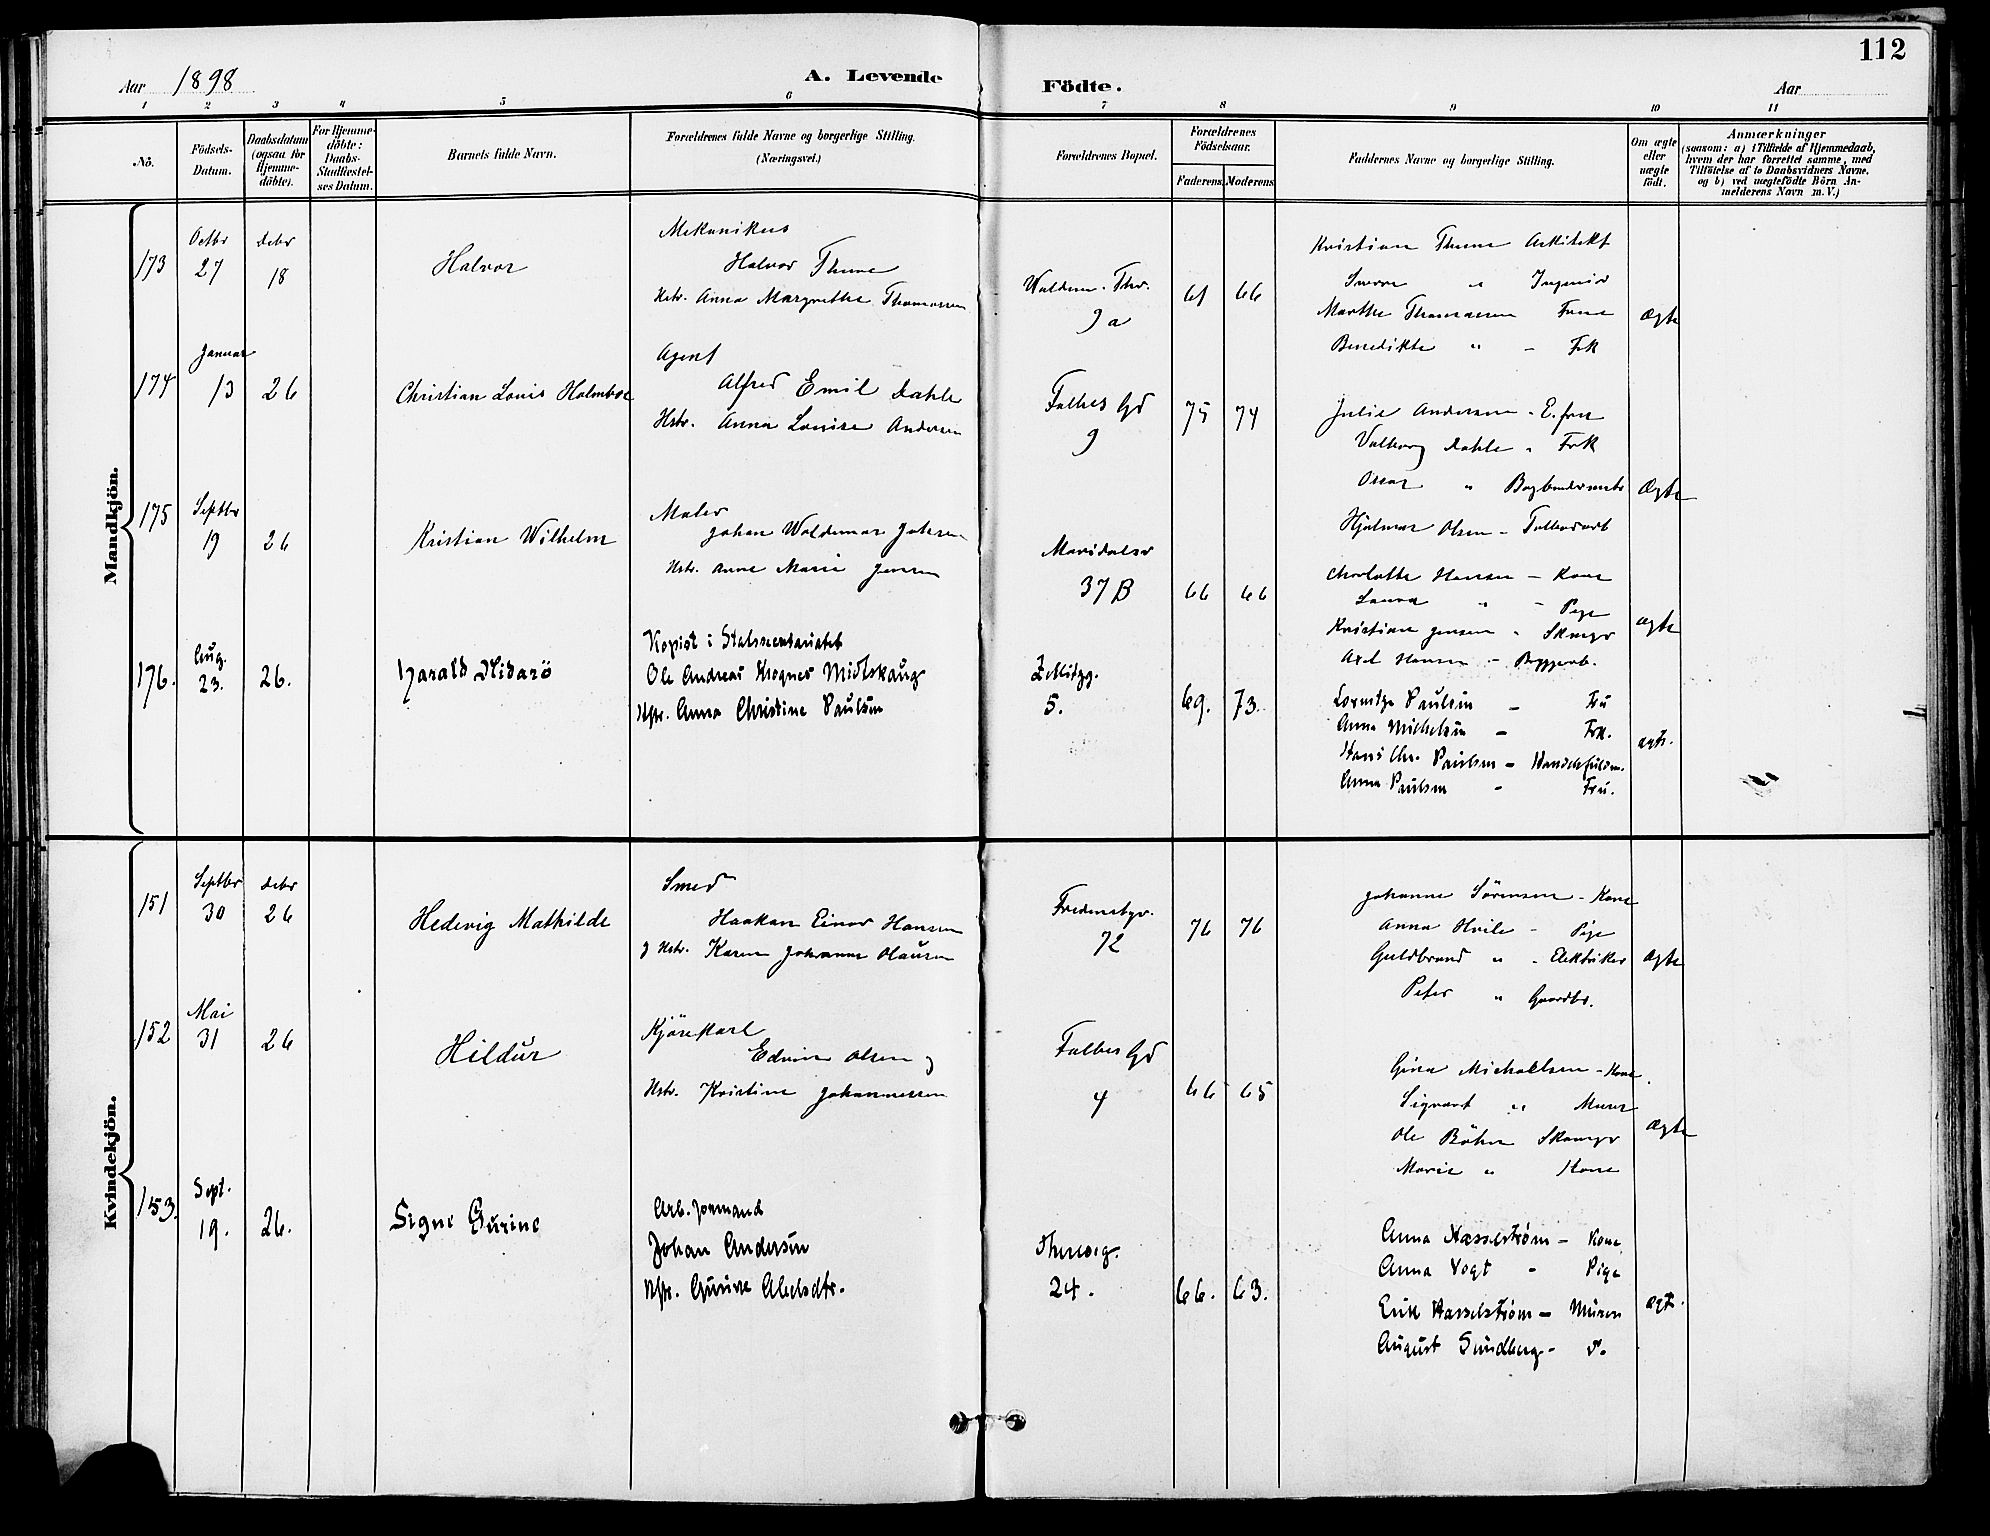 112
Aar 1898
A. Levende
Födte.
Aar
1 2 3 4 5 6 7 8 9 10 11
No.
Födsels-Datum.
Daabsdatum (ogsaa for Hjemme-döbte).
For Hjemme-döbte: Daabs-Stadfæstel-ses Datum.
Barnets fulde Navn.
Forældrenes fulde Navne og borgerlige Stilling. (Næringsvei.)
Forældrenes Bopæl.
Forældrenes Födselsaar.
Faderens. Moderens.
Faddernes Navne og borgerlige Stilling.
Om ægte eller uægte födt.
Anmærkninger
(saasom: a) i Tilfælde af Hjemmedaab,
hvem der har forrettet samme, med
Tilföielse af to Daabsvidners Navne,
og b) ved uægtefödte Börn An-
melderens Navn m. V.)
Mandkjön.
173
Octbr 27
Debr 18
Halvor
Mekanikus
Halvor Thune
Hstr. Anna Margrethe Thomassen
9 a
61 66
Kristian Thune Arkitekt
Sverre " Ingeniør
Marthe Thomassen Frue
Benedikte " - Frk
Ægte
174
Januar 13
26
Christian Louis Holmboe
Agent
Alfred Emil Dahle
Hstr. Anna Louise Andersen
Falbes Gd
9
75 74
Julie Andersen - E. frue
Valborg Dahle - Frk
Oscar " Bogbindermstr
Hjalmar Olsen -
Ægte
175
Septbr 19
26
Kristian Wilhelm
Maler
Johan Waldemar Johnsen
Hstr. Anne Marie Jensen
Maridalsv
37 B
66 66
Charlotte Hansen - Kone
Laura " - Pige
Kristian Jensen - Skomgr
Axel Hansen - Byggarb.
Ægte
176.
Aug. 23.
26.
Harald Hidarö
Kopist i Statssecretariatet
Ole Andreas Krognes Midtskaug
Hstr. Anna Christine Paulsen
5.
69. 73.
Lorentze Paulsen - Fru
Anna Michelsen - Frk.
Hans Chr. Paulsen - Handelsfuldm.
Anna Paulsen - Fru.
ægte.
Kvindekjön.
151
Septbr 30
Debr 26
Hedevig Mathilde
Smed
Haakon Einar Hansen
g Hstr. Karen Johanne Olausen
Fredensbgv.
72
76 76
Johanne Sørensen - Kone
Anna Hvile - Pige
Guldbrand " - Elektriker
Peter " Gaardbr.
Ægte
152
Mai 31
26
Hildur
Kjørekarl
Edvin Olsen g
Hstr. Kristine Johannessen
Falbes Gd
4
66 65
Gina Michaelsen - Kone
Sigvart " Murer
Ole Böhn Skomgr
Marie " Kone
Ægte
153.
Sept. 19.
26.
Signe Gurine
Arb. Formand
Johan Andersen
Hstr. Gurine Abelsdtr.
Theresg.
24.
66. 63.
Anna Hasselstrøm - Kone
Anna Vogt - Pige
Erik Hasselstrøm - Murer
August Sundberg - d.
ægte.